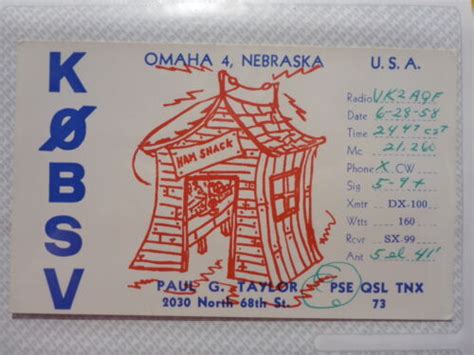 KØBSV
OMAHA 4, NEBRASKA U. S. A.
HAM SHACK
Radio VK2AQF
Date 6-28-58
Time 2447 CST
Mc 21.260
Phone X CW
Sig 5-9+
Xmtr DX-100
Wtts 160
Rcvr SX-99
Ant 5 el 41'
PAUL G. TAYLOR
2030 North 68th St.
PSE QSL TNX
73